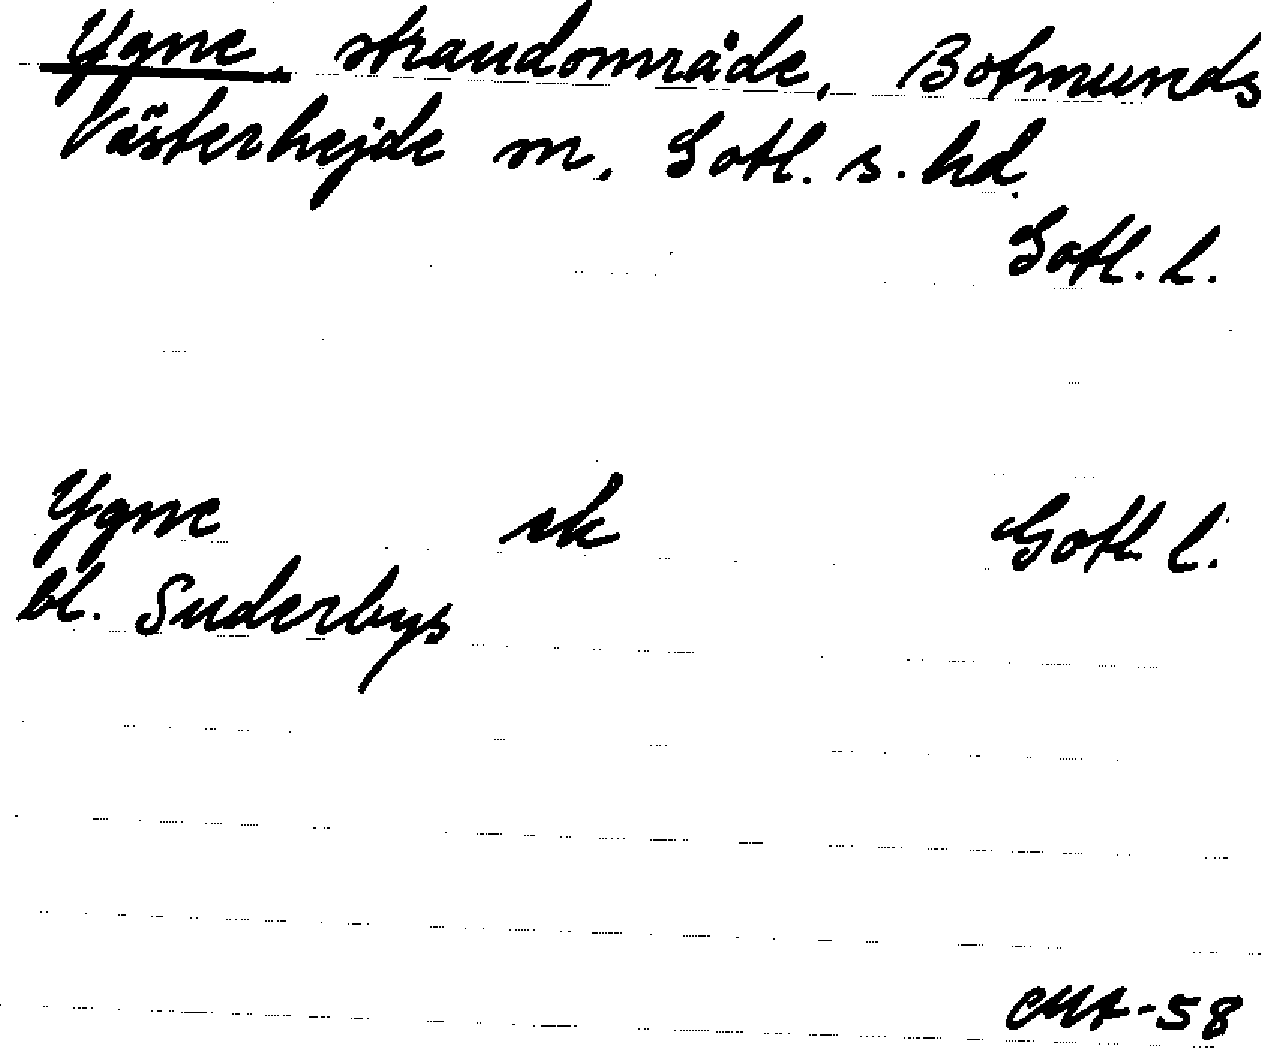 Ygne, strandområde, Botmunds
Västerhejde sn, Gotl. s. hd.
Gotl. l.
Ygne ek Gotl l.
bl. Suderbys
CMA-58